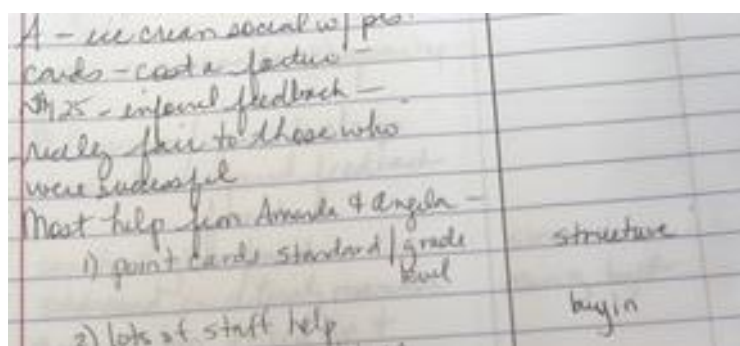 A - ice cream social w/
cards - cost a factor -
$125 - informal feedback -
really fair to those who
were successful
Most help from Amanda & Angela -
1) point cards standard/grade
level
structure
2) lots of staff help
buyin